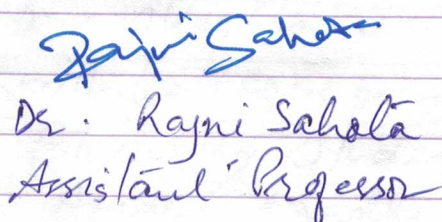 Rajni Sahota
Dr. Rajni Sahota
Assistant Professor